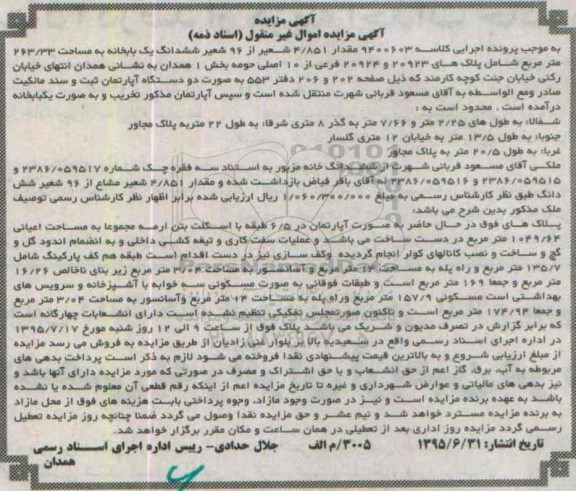 آگهی مزایده
آگهی مزایده اموال غیر منقول (اسناد ذمه)
به موجب پرونده اجرایی کلاسه ۹۴۰۰۶۰۳ مقدار ۴/۸۵۱ شعیر از ۹۶ شعیر ششدانگ یک بابخانه به مساحت ۲۶۳/۳۳
متر مربع شامل پلاک های ۲۰۹۲۳ و ۲۰۹۲۴ فرعی از ۱۰ اصلی حومه بخش ۱ همدان به نشانی همدان انتهای خیابان
رکنی خیابان جنت کوچه کارمند که ذیل صفحه ۲۰۲ و ۲۰۶ دفتر ۵۵۳ به صورت دو دستگاه آپارتمان ثبت و سند مالکیت
صادر ومع الواسطه به آقای مسعود قربانی شهرت منتقل شده است و سپس آپارتمان مذکور تخریب و به صورت یکبابخانه
درآمده است . محدود است به :
شمالا: به طول های ۲/۲۵ متر و ۷/۶۶ متر به گذر ۸ متری شرقا: به طول ۲۲ متربه پلاک مجاور
جنوبا: به طول ۱۳/۵ متر به خیابان ۱۲ متری گلسار
غربا: به طول ۲۰/۵ متر به پلاک مجاور
ملکی آقای مسعود قربانی شهرت از شش دانگ خانه مزبور به استناد سه فقره چک شماره ۲۳۸۶/۰۵۹۵۱۷ و
۲۳۸۶/۰۵۹۵۱۶ و ۲۳۸۶/۰۵۹۵۱۵ له آقای باقر فیاض بازداشت شده و مقدار ۴/۸۵۱ شعیر مشاع از ۹۶ شعیر شش
دانگ طبق نظر کارشناس رسمی به مبلغ ۱/۰۶۰/۳۰۰/۰۰۰ ریال ارزیابی شده برابر اظهار نظر کارشناس رسمی توصیف
ملک مذکور بدین شرح می باشد:
پلاک های فوق در حال حاضر به صورت آپارتمان در ۶/۵ طبقه با اسکلت بتن آرمه مجموعا به مساحت اعیانی
۱۰۴۹/۶۴ متر مربع در دست ساخت می باشد و عملیات سفت کاری و تیغه کشی داخلی و به انضمام اندود گل و
گچ و ساخت و نصب کانالهای کولر انجام گردیده وکف سازی نیز در دست اقدام است طبقه هم کف پارکینگ شامل
۱۳۵/۷ متر مربع و راه پله به مساحت ۱۴ متر مربع و آسانسور به مساحت ۳/۰۴ متر مربع زیر بنای ناخالص ۱۶/۲۶
متر مربع و جمعا ۱۶۹ متر مربع است و طبقات فوقانی به صورت مسکونی سه خوابه با آشپزخانه و سرویس های
بهداشتی است مسکونی ۱۵۷/۹ متر مربع وراه پله به مساحت ۱۴ متر مربع وآسانسور به مساحت ۳/۰۴ متر مربع
و جمعا ۱۷۴/۹۴ متر مربع است و تاکنون صورتمجلس تفکیکی تنظیم نشده است دارای انشعابات چهارگانه است
که برابر گزارش در تصرف مدیون و شریک می باشد. پلاک فوق از ساعت ۹ الی ۱۲ روز شنبه مورخ ۱۳۹۵/۷/۱۷
در اداره اجرای اسناد رسمی واقع در سعیدیه بالاتر بلوار غنی زادیان از طریق مزایده به فروش می رسد مزایده
از مبلغ ارزیابی شروع و به بالاترین قیمت پیشنهادی نقدا فروخته می شود لازم به ذکر است پرداخت بدهی های
مربوطه به آب، برق، گاز اعم از حق انشعاب و یا حق اشتراک و مصرف در صورتی که مورد مزایده دارای آنها باشد و
نیز بدهی های مالیاتی و عوارض شهرداری و غیره تا تاریخ مزایده اعم از اینکه رقم قطعی آن معلوم شده یا نشده
باشد به عهده برنده مزایده است و نیز در صورت وجود مازاد، وجوه پرداختی بابت هزینه های فوق از محل مازاد
به برنده مزایده مسترد خواهد شد و نیم عشر و حق مزایده نقدا وصول می گردد ضمنا چنانچه روز مزایده تعطیل
رسمی گردد مزایده روز اداری بعد از تعطیلی در همان ساعت و مکان مقرر برگزار خواهد شد.
تاریخ انتشار: ۱۳۹۵/۶/۳۱ ۳۰۰۵/م الف جلال حدادی- رییس اداره اجرای اسناد رسمی
همدان